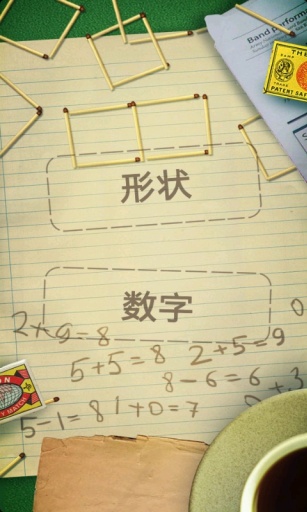 Band performs
THE
PATENT SAFE
形状
数字
2+9=8
5+5=8 2+5=9
8-6=6
+3
5-1=8 1+0=7